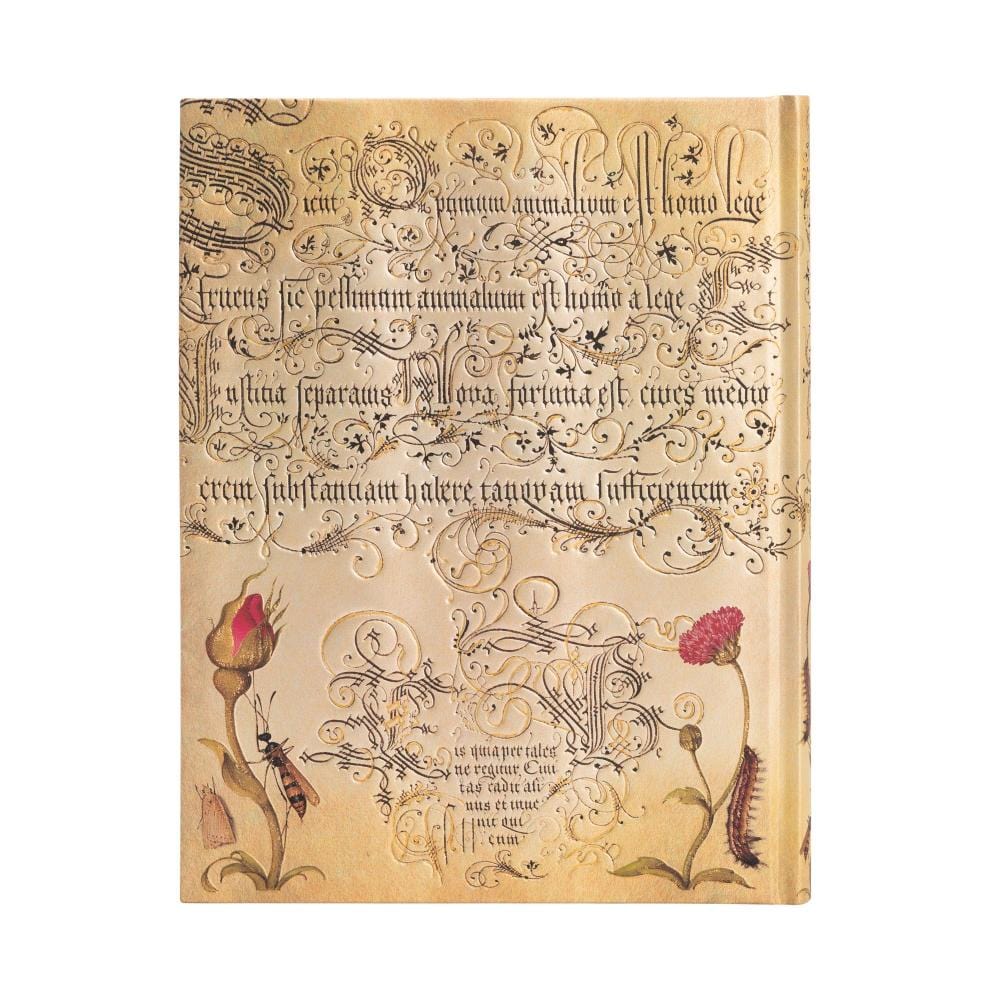 Sicut Optimum animalium est homo lege
fruens sic pessimum animalium est homo a lege et
Iustitia separatus Nova fortuna est cives medio
crem substantiam habere tanquam sufficientem
is quia per tales
ne regitur Civi
tas cadit asi
nus et inve
nit qui
eum